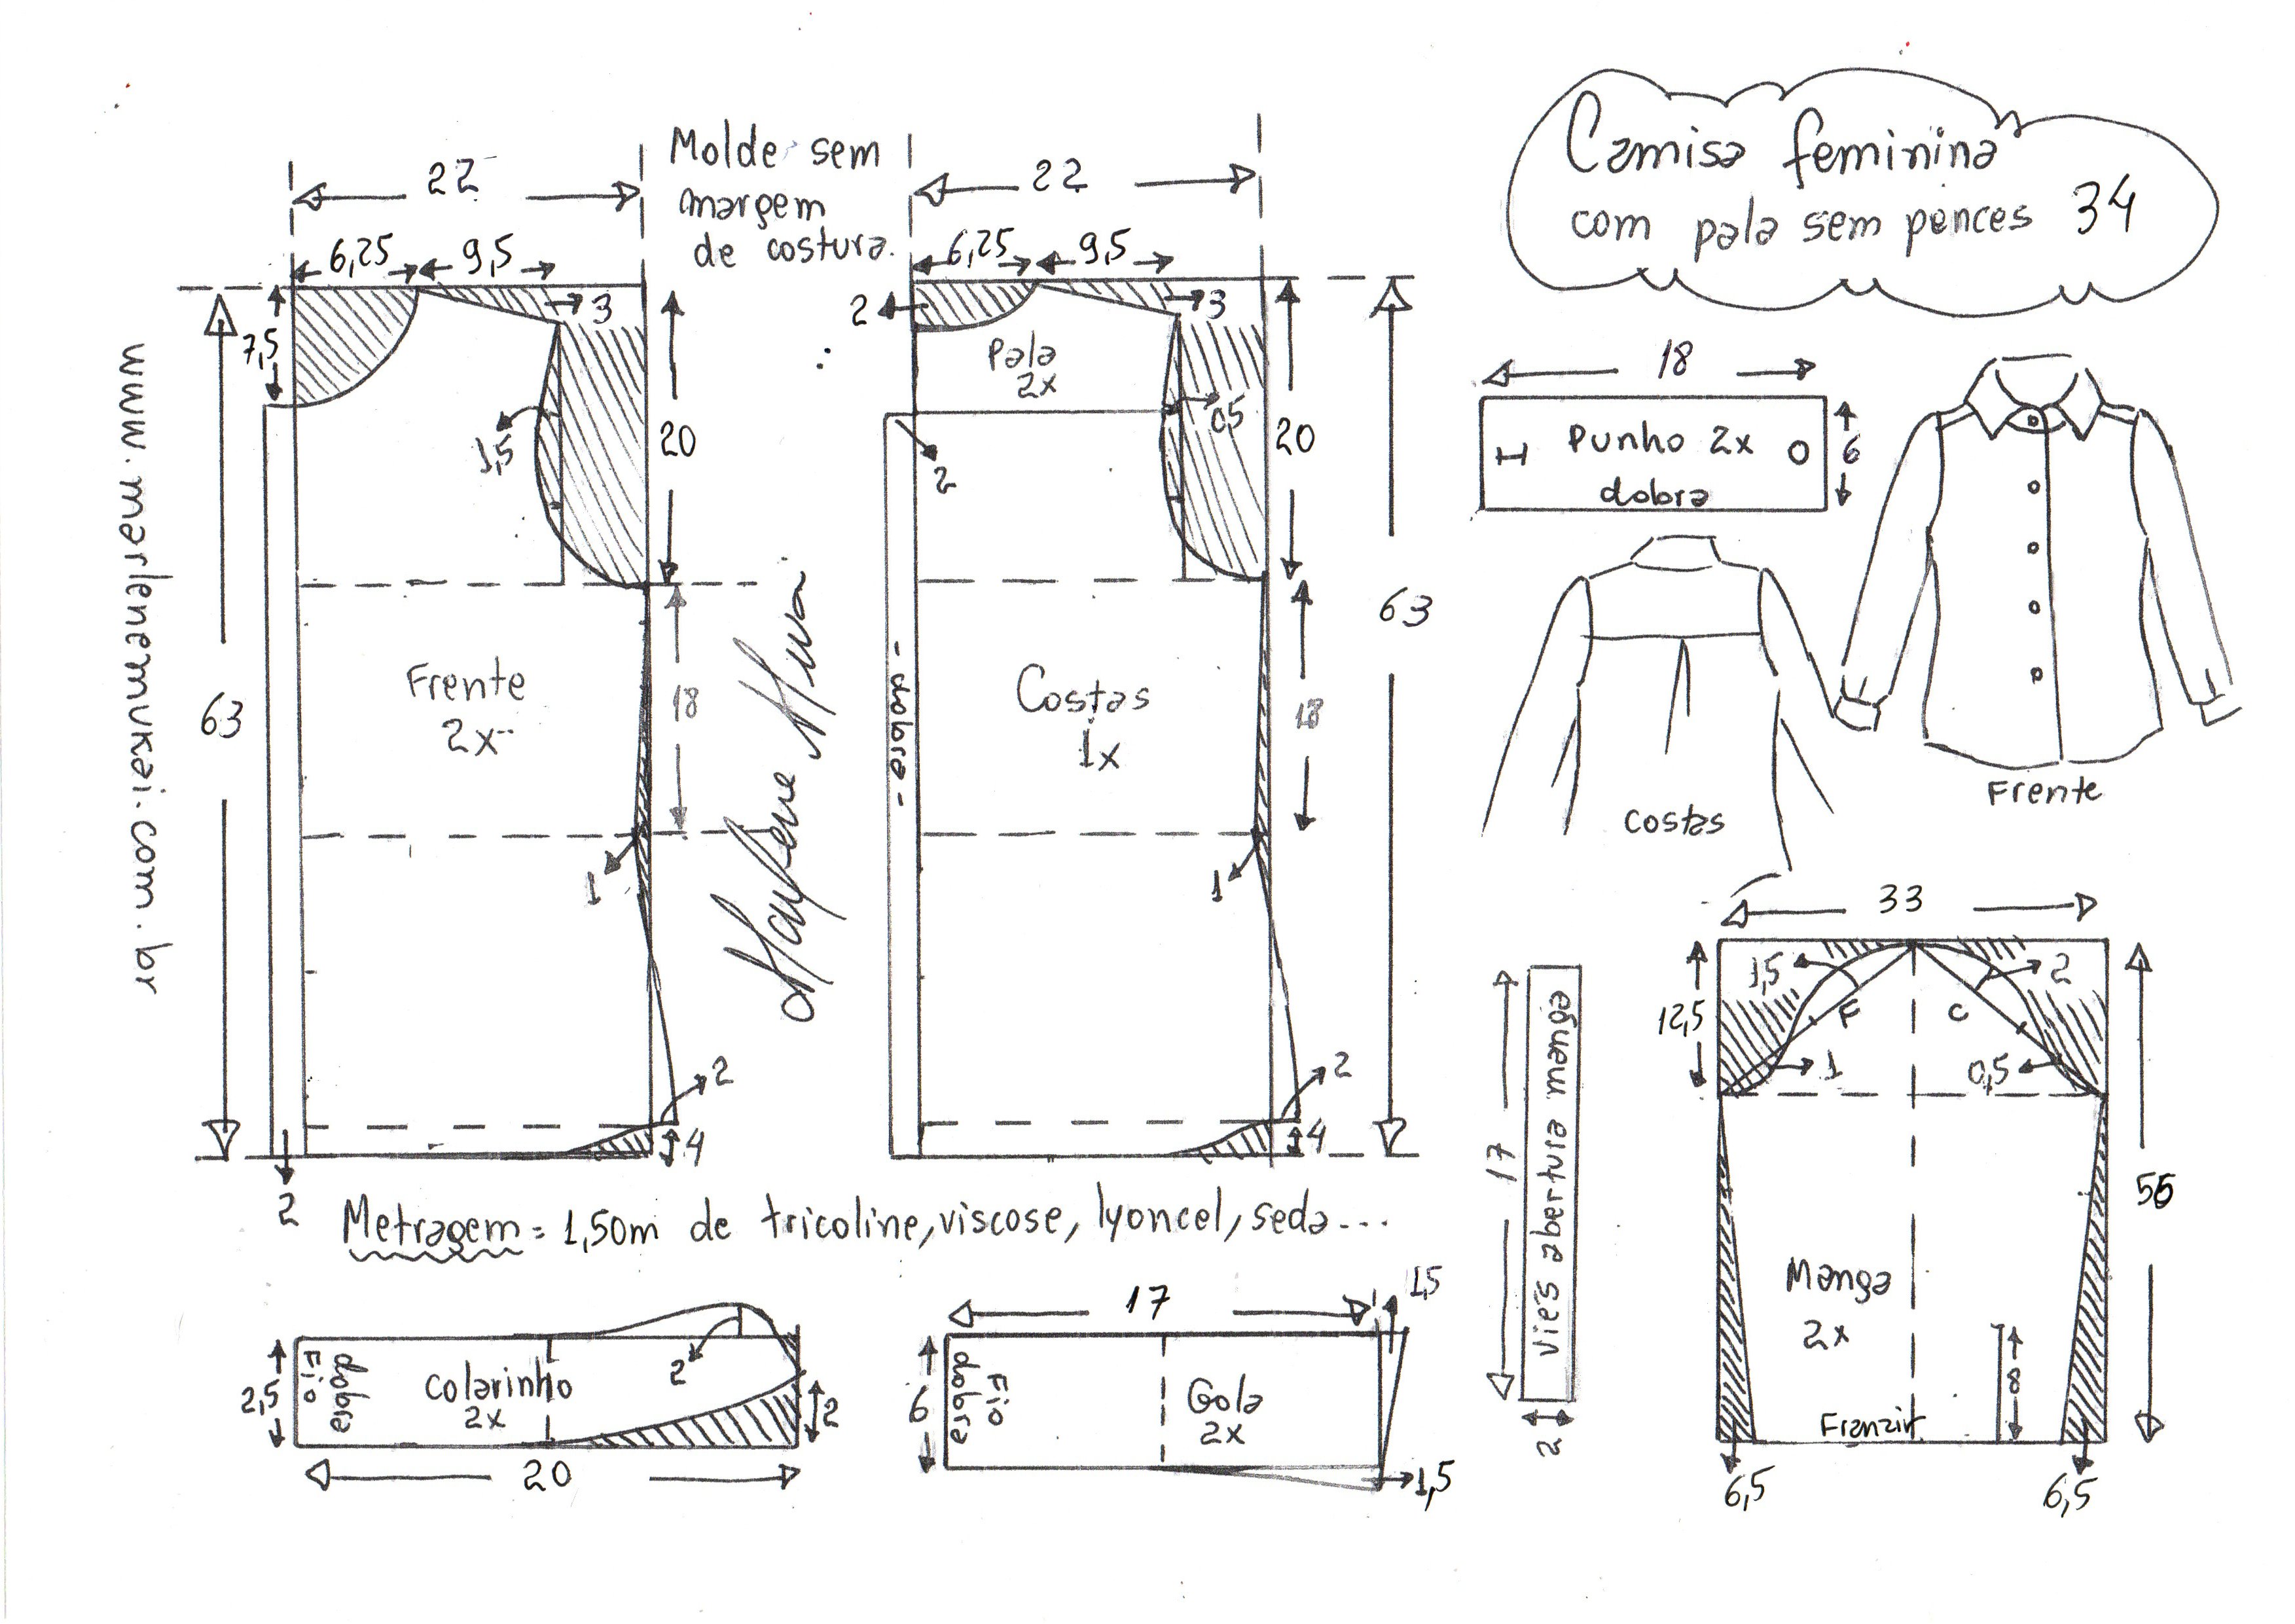 Camisa feminina
com pala sem pences 34
Molde sem
margem
de costura.
22
6,25
9,5
3
7,5
1,5
20
63
Frente
2x
18
1
2
4
2
www.marlenemukai.com.br
22
6,25
9,5
2
3
Pala
2x
0,5
2
20
63
- dobra -
Costas
1x
18
1
2
4
18
Punho 2x
dobra
6
Frente
costas
Metragem = 1,50m de tricoline, viscose, lyoncel, seda...
2,5
Fio
dobra
Colarinho
2x
2
2
20
17
1,5
6
dobra
Fio
Gola
2x
1,5
17
viés abertura manga
2
33
1,5
2
12,5
F
C
1
0,5
55
Manga
2x
8
Franzir
6,5
6,5